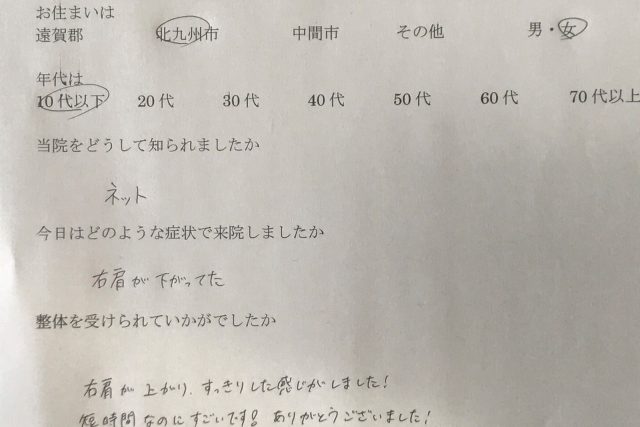 お住まいは
遠賀郡 北九州市 中間市 その他 男・女
年代は
10代以下 20代 30代 40代 50代 60代 70代以上
当院をどうして知られましたか
ネット
今日はどのような症状で来院しましたか
右肩が下がってた
整体を受けられていかがでしたか
右肩が上がり、すっきりした感じがしました!
短時間なのにすごいです! ありがとうございました!